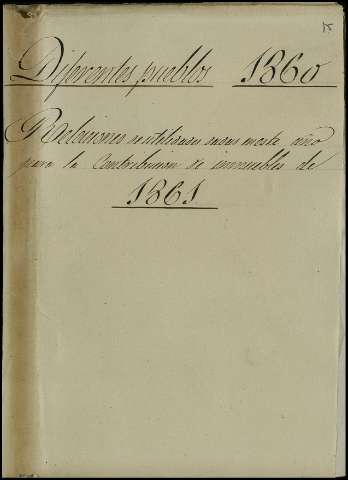 15
Diferentes pueblos 1860
Relaciones de utilidades dadas en este año
para la Contribucion de inmuebles de
1861